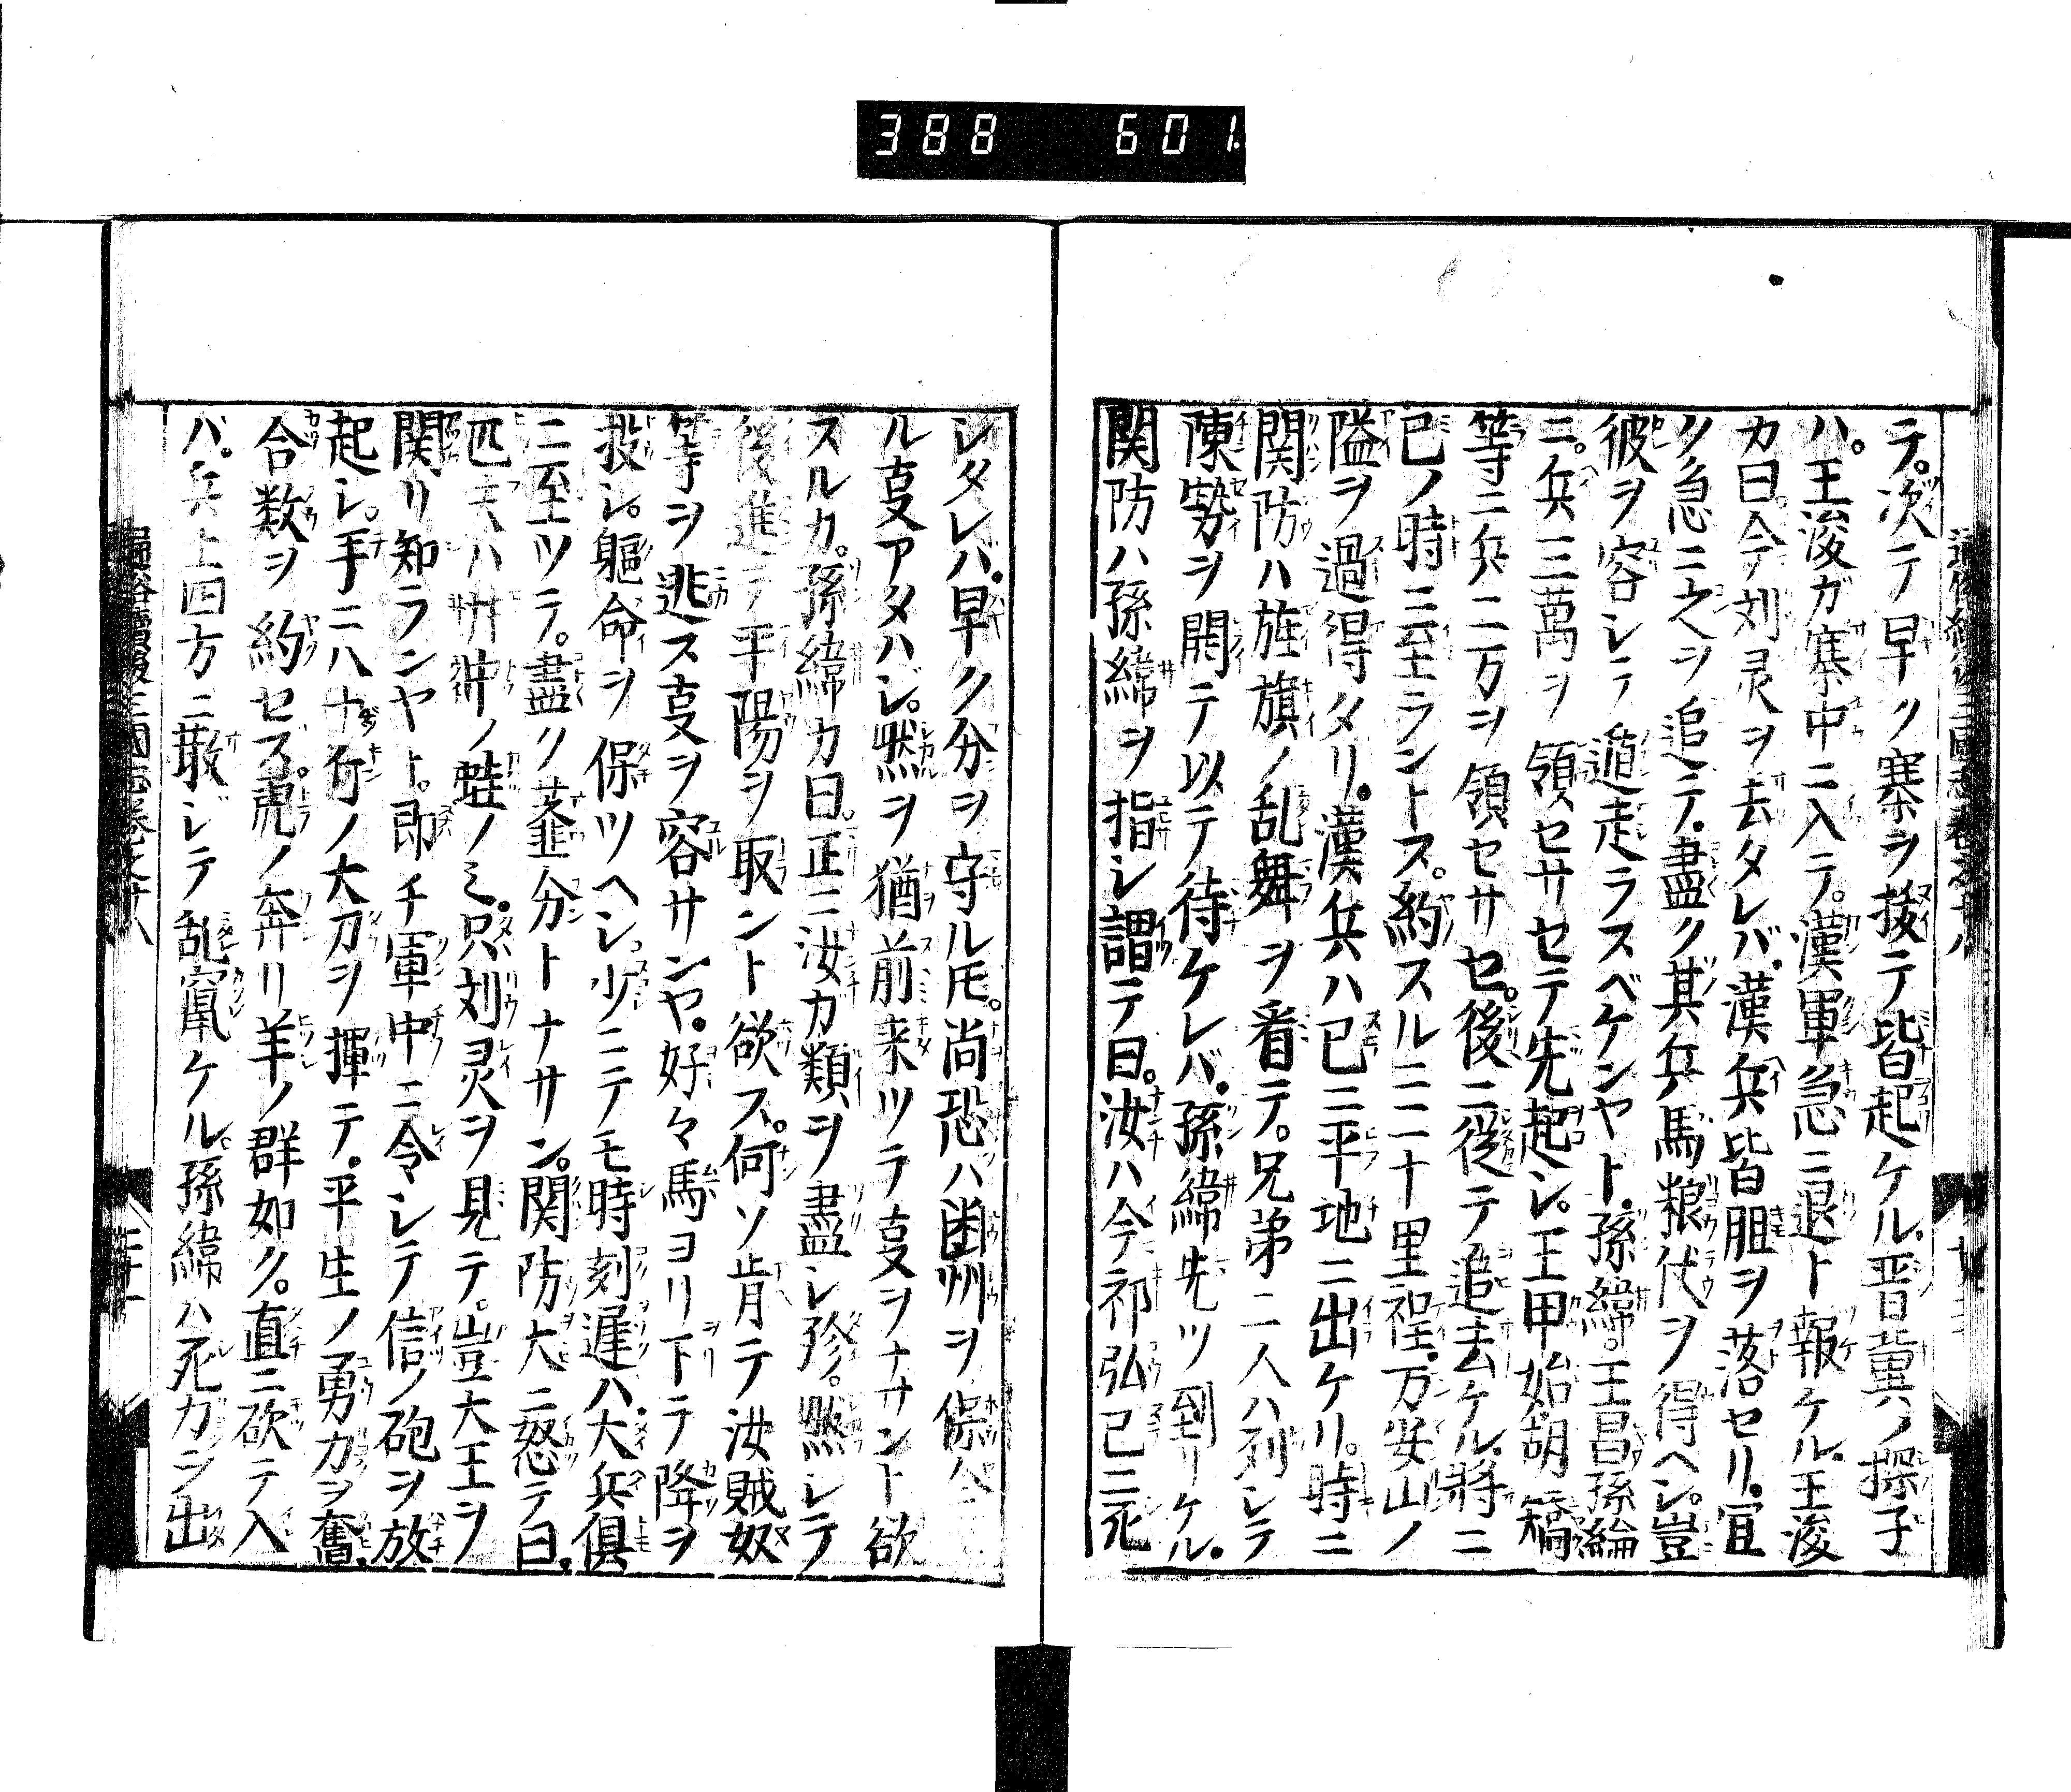 388 601
テ。次テ早ク寨ヲ拔テ皆起ケル。晋冀ノ探子
ハ。王浚ガ寨中ニ入テ。漢軍急ニ退ト報ケル。王浚
カ曰。今刘灵ヲ去タレバ。漢兵皆胆ヲ落セリ。宜
ク急ニ之ヲ追テ。盡ク其兵馬粮仗ヲ得ヘシ。豈
彼ヲ容シテ遁走ラスベケンヤト。孫緯。王昌孫綸
ニ。兵三萬ヲ領セサセテ先起シ。王甲始胡矯
等ニ兵二万ヲ領セサセ。後ニ從テ追去ケル。將ニ
已ノ時ニ至ラントス。約スルニ二十里程。万安山ノ
隘ヲ過得タリ。漢兵ハ已ニ平地ニ出ケリ。時ニ
関防ハ旌旗ノ乱舞ヲ看テ。兄弟二人ハ列シテ
陳勢ヲ開テ以テ待ケレバ。孫緯先ツ到リケル。
関防ハ孫緯ヲ指シ謂テ曰。汝ハ今祁弘已ニ死
シタレバ。早ク分ヲ守ル𪜈。尚恐ハ幽州ヲ保ハ
ル叓アタハジ。然ヲ猶前来ツテ叓ヲナサント欲
スルカ。孫緯カ曰。正ニ汝カ類ヲ盡シ殄。然シテ
後進テ平陽ヲ取ント欲ス。何ソ肯テ汝賊奴
等ヲ逃ス叓ヲ容サンヤ。好々馬ヨリ下テ降ヲ
投シ。軀命ヲ保ツヘシ少ニテモ時刻遲ハ。大兵俱
ニ至ツテ。盡ク韲分トナサン。関防大ニ怒テ曰。
匹夫ハ井冲ノ蛙ノミ。只刘灵ヲ見テ。豈大王ヲ
関リ知ランヤト。即チ軍中ニ令シテ信ノ砲ヲ放
起シ。手ニ八十斤ノ大刀ヲ揮テ。平生ノ勇力ヲ奮。
合数ヲ約セス。虎ノ奔リ羊ノ群如ク。直ニ砍テ入
バ。兵上四方ニ散ジテ乱竄ケル。孫緯ハ死力ヲ出